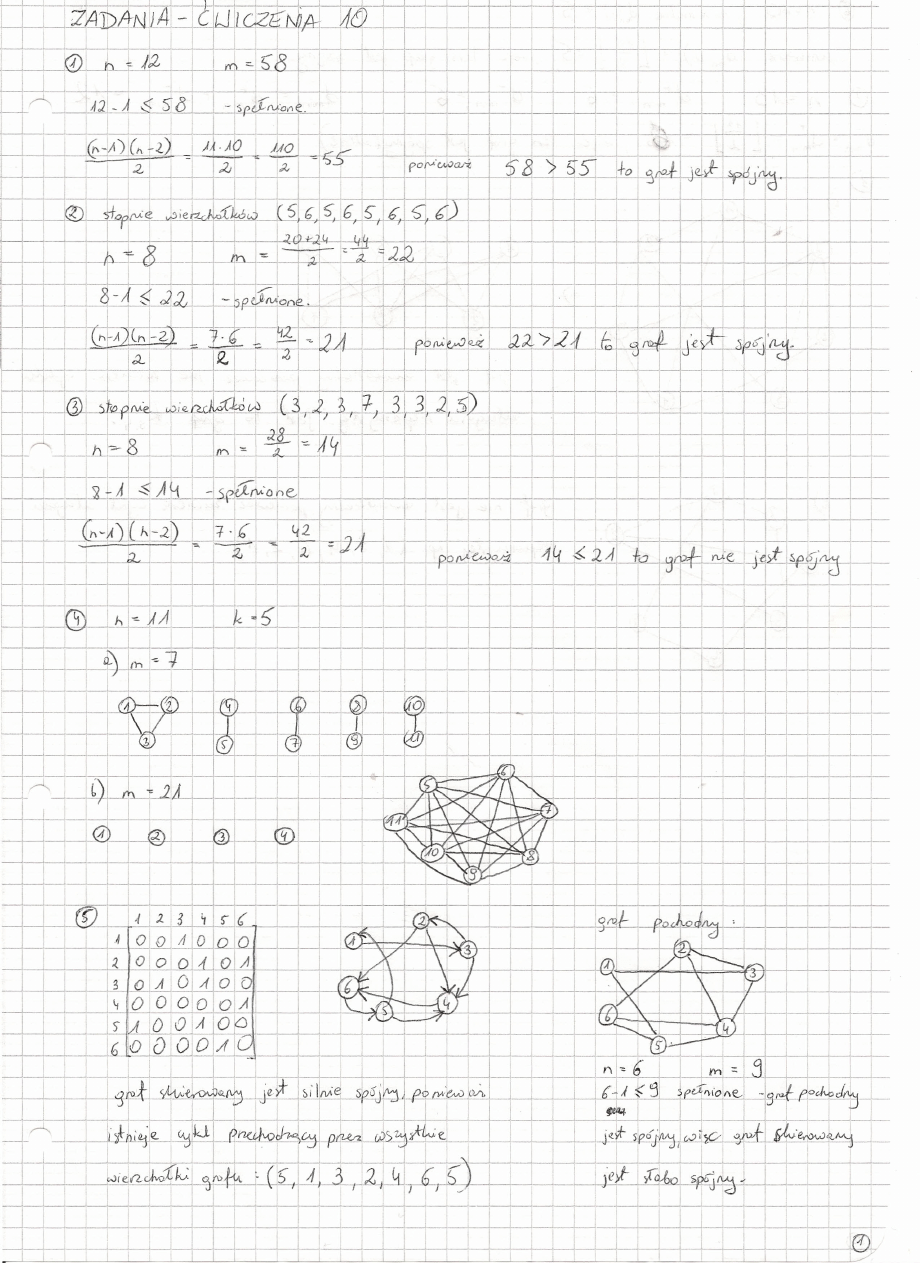 ZADANIA - ĆWICZENIA 10
① n = 12 m = 58
12-1 ≤ 58 - spełnione.
(n-1)(n-2)/2 = 11·10/2 = 110/2 = 55 ponieważ 58 > 55 to graf jest spójny.
② stopnie wierzchołków (5,6,5,6,5,6,5,6)
n = 8 m = 20+24/2 = 44/2 = 22
8-1 ≤ 22 - spełnione.
(n-1)(n-2)/2 = 7·6/2 = 42/2 = 21 ponieważ 22>21 to graf jest spójny.
③ stopnie wierzchołków (3,2,3,7,3,3,2,5)
n = 8 m = 28/2 = 14
8-1 ≤ 14 - spełnione
(n-1)(n-2)/2 = 7·6/2 = 42/2 = 21 ponieważ 14 ≤ 21 to graf nie jest spójny
④ n = 11 k = 5
a) m = 7
1 2 4 6 8 10
3 5 7 9 11
b) m = 21
1 2 3 4
5 6 7 11 10 8 9
⑤ 1 2 3 4 5 6
1 0 0 1 0 0 0
2 0 0 0 1 0 1
3 0 1 0 1 0 0
4 0 0 0 0 0 1
5 1 0 0 1 0 0
6 0 0 0 0 1 0
1 2 3 6 5 4
graf pochodny:
1 2 3 6 5 4
n = 6 m = 9
6-1 ≤ 9 spełnione - graf pochodny
jest spójny, więc graf skierowany
jest słabo spójny.
graf skierowany jest silnie spójny, ponieważ
istnieje cykl przechodzący przez wszystkie
wierzchołki grafu: (5, 1, 3, 2, 4, 6, 5)
①